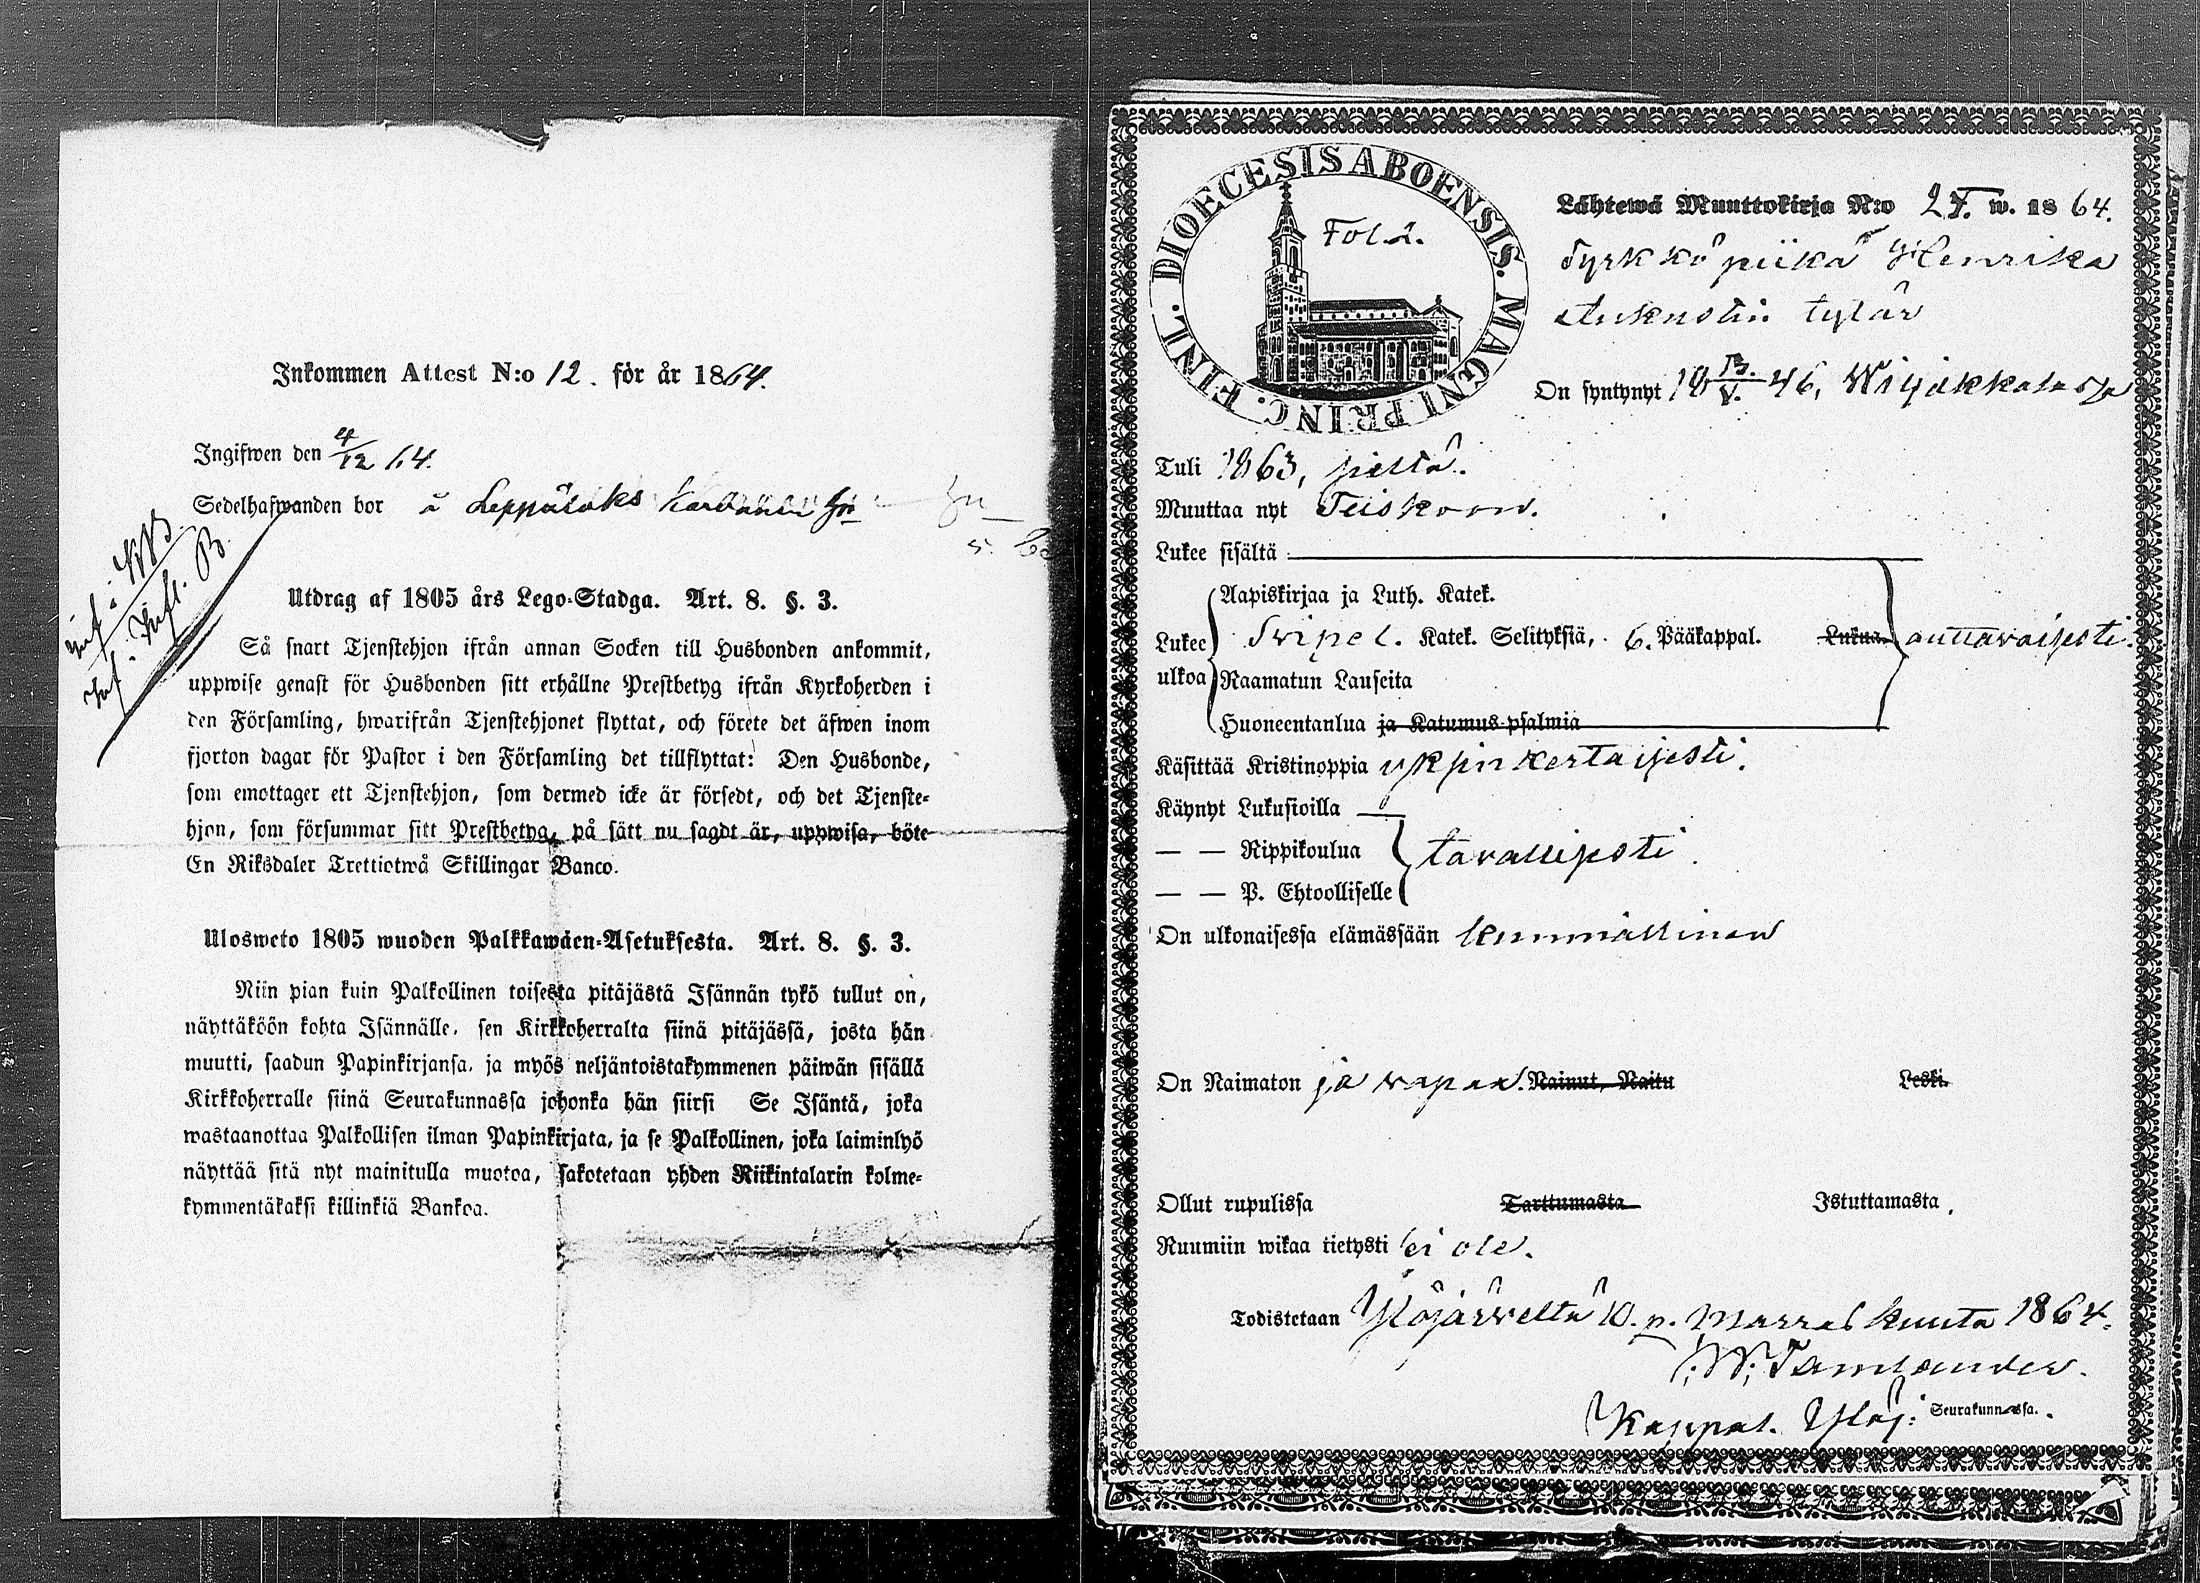 Inkommen Attest N:o 12. för år 1864.
Ingifwen den 4/12 64.
Sedelhafwanden bor å
Utdrag af 1805 års Lego-Stadga. Art. 8. §. 3.
Så snart Tjenstehjon ifrån annan Socken till Husbonden ankommit,
uppwise genast för Husbonden sitt erhållne Prestbetyg ifrån Kyrkoherden i
den Församling, hwarifrån Tjenstehjonet flyttat, och förete det äfwen inom
fjorton dagar för Pastor i den Församling det tillflyttat: Den Husbonde,
som emottager ett Tjenstehjon, som dermed icke är försedt, och det Tjenste-
hjon, som försummar sitt Prestbetyg, på sätt nu sagdt är, uppwisa, böte
En Riksdaler Trettiotwå Skillingar Banco.
Ulosweto 1805 wuoden Palkkawäen-Asetuksesta. Art. 8. §. 3.
Niin pian kuin Palkollinen toisesta pitäjästä Isännän tykö tullut on,
näyttäköön kohta Isännälle, sen Kirkkoherralta siinä pitäjässä, josta hän
muutti, saadun Papinkirjansa, ja myös neljäntoistakymmenen päiwän sisällä
Kirkkoherralle siinä Seurakunnassa johonka hän siirsi Se Isäntä, joka
wastaanottaa Palkollisen ilman Papinkirjata, ja se Palkollinen, joka laiminlyö
näyttää sitä nyt mainitulla muotoa, sakotetaan yhden Riikintalarin kolme-
kymmentäkaksi killinkiä Bankoa.
DIOECESIS ABOENSIS. MAGNI PRINC. FINL.
Fol. 2.
Lähtewä Muuttokirja N:o w. 1864.
piika Henrika
Aukustin tytär
On syntynyt 18 46, Wiljakkalassa
Tuli 1863, piltä.
Muuttaa nyt Teiskoon.
Lukee sisältä
Lukee ulkoa
Aapiskirjaa ja Luth. Katek.
Svipel. Katek. Selityksiä, 6. Pääkappal. Lukua. auttavaisesti.
Raamatun Lauseita
Huoneentaulua ja Katumus-psalmia
Käsittää Kristinoppia yksinkertaisesti.
Käynyt Lukusioilla
— — Rippikoulua tavallisesti.
— — P. Ehtoolliselle
On ulkonaisessa elämässään kunniallinen
On Naimaton ja vapaa. Nainut, Naitu Leski.
Ollut rupulissa Tarttumasta Istuttamasta.
Ruumiin wikaa tietysti ei ole.
Todistetaan Ylöjärveltä 10. p. Marraskuuta 1864.
W. Tamlander.
Kappal. Ylöj: Seurakunnassa.